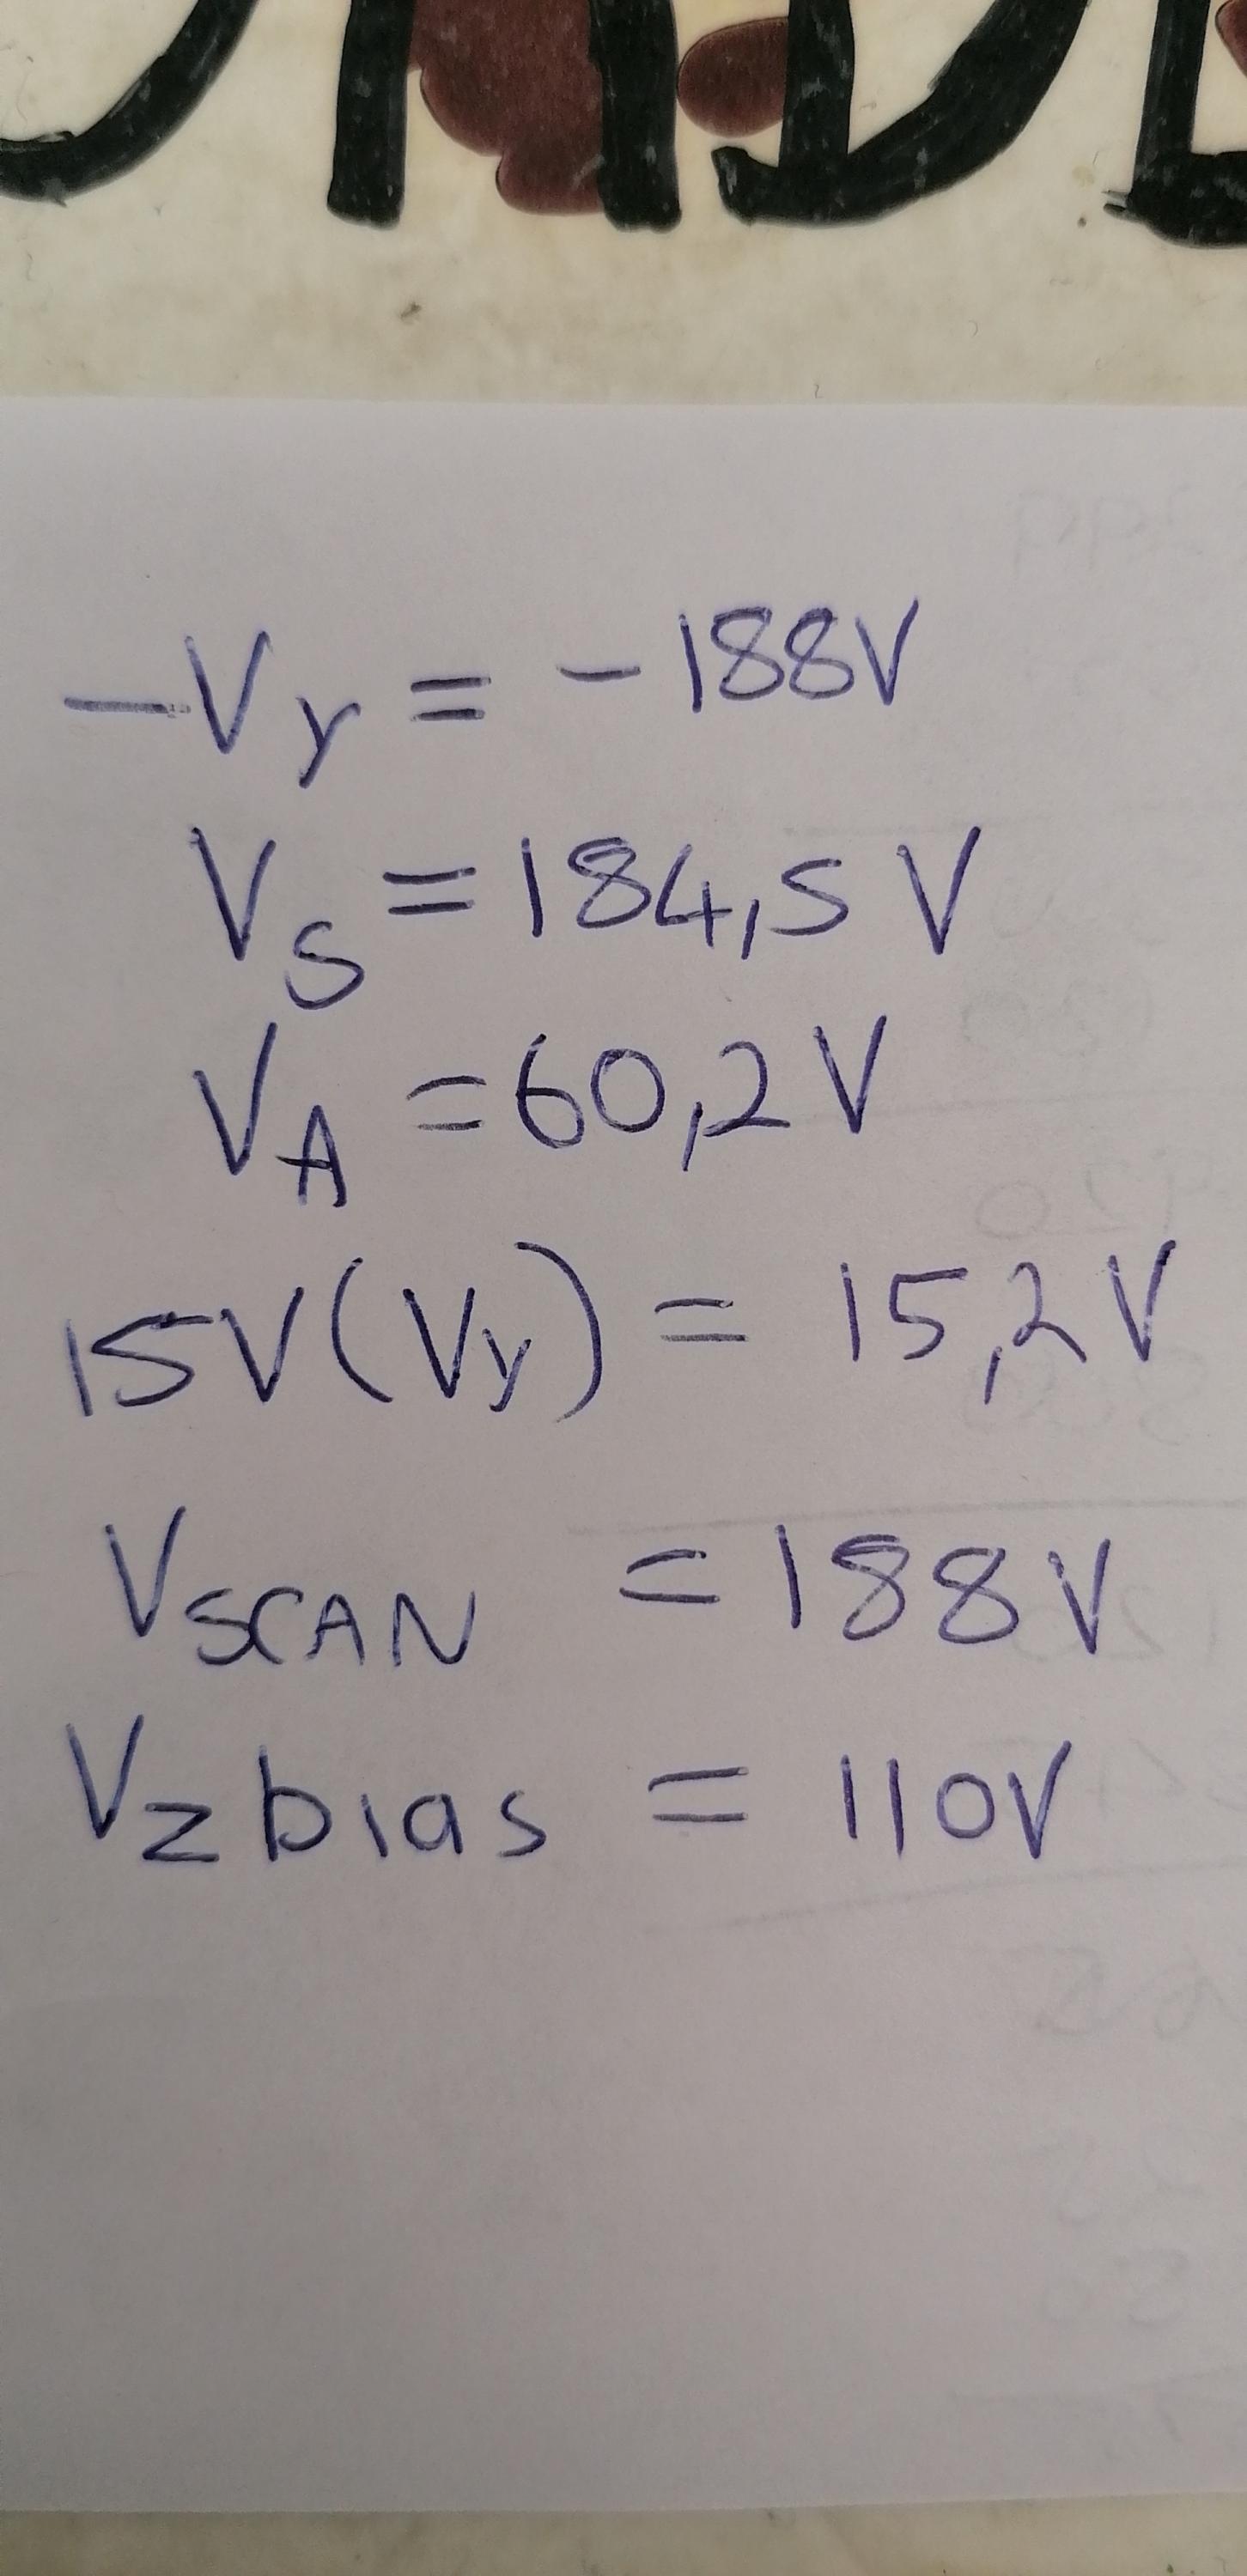 -Vy = -188V
Vs = 184,5 V
VA = 60,2 V
15V(Vy) = 15,2 V
VSCAN = 188V
Vz bias = 110V